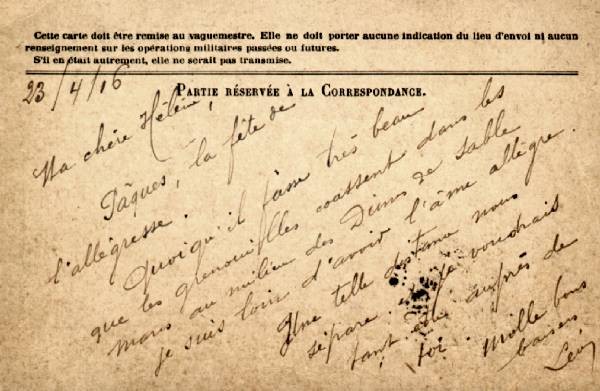 Cette carte doit être remise au vaguemestre. Elle ne doit porter aucune indication du lieu d'envoi ni aucun
renseignement sur les opérations militaires passées ou futures.
S'il en était autrement, elle ne serait pas transmise.
PARTIE RÉSERVÉE À LA CORRESPONDANCE.
23/4/16
Ma chère Hélène,
Pâques, la fête de
l'allégresse.
Quoiqu'il fasse très beau
que les grenouilles coassent dans les
mares au milieu des Dunes de sable
je suis loin d'avoir l'âme allègre.
Une telle distance nous
sépare et je voudrais
tant être auprès de
toi. Mille bons
baisers